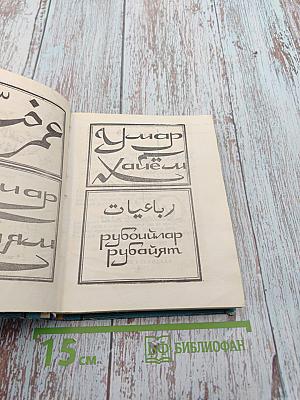 عمر خ
мар
ям
Умар
Хайём
رباعيات
рубоийлар
рубайят
15 см.
БФ БИБЛИОФАН